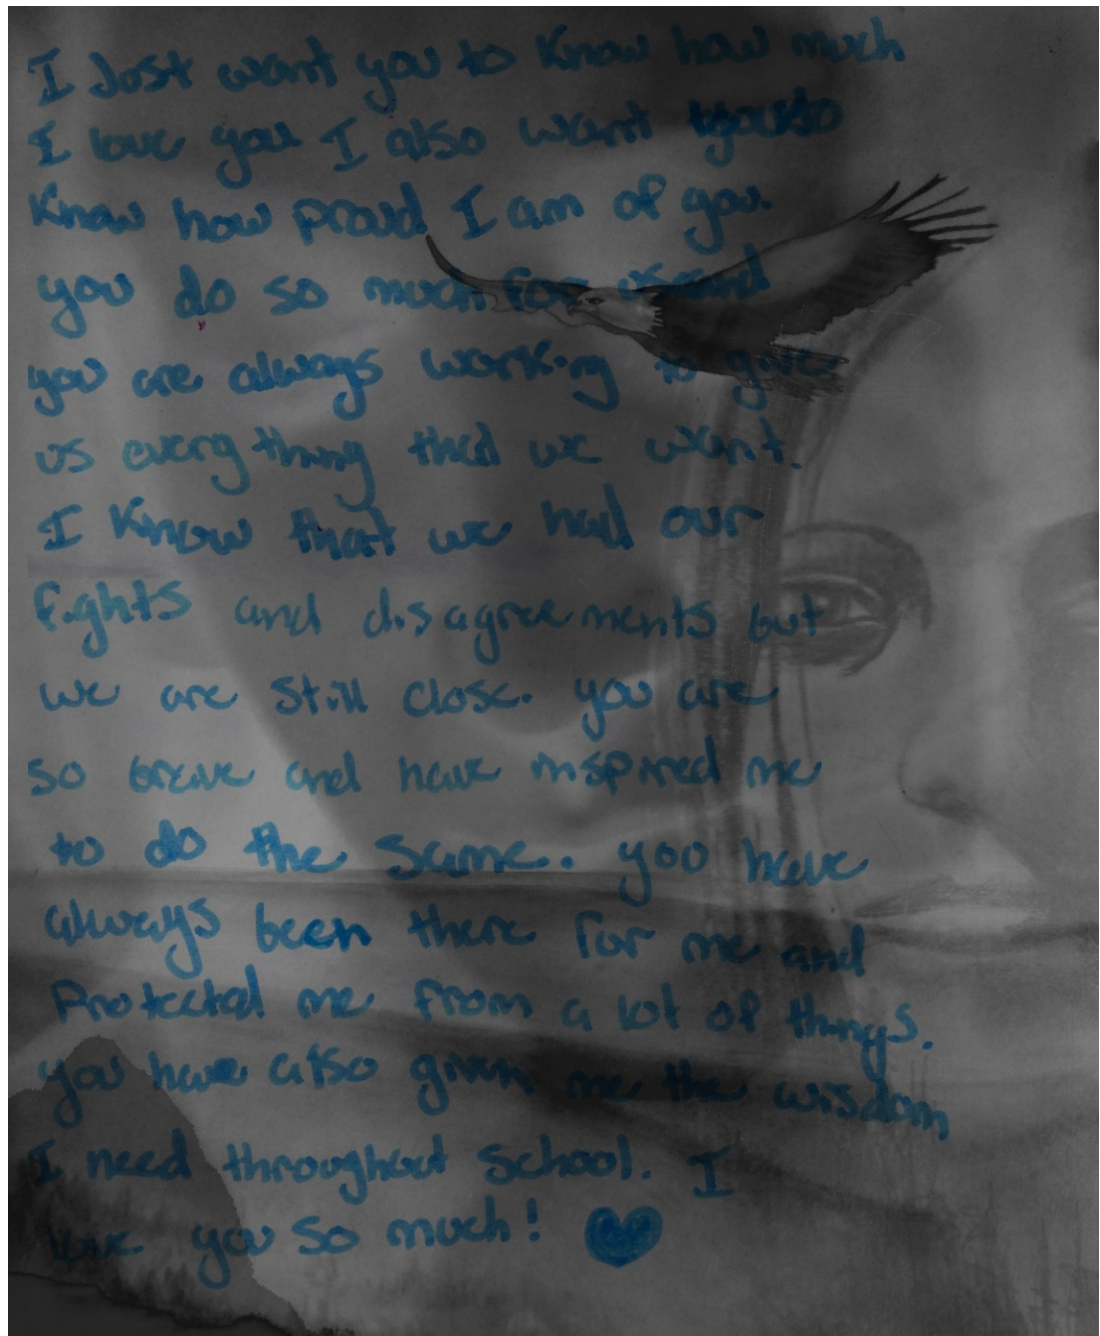 I Just want you to Know how much
I love you I also want you to
Know how proud I am of you.
you do so much for us and
you are always working to give
us every thing that we want.
I Know that we had our
fights and disagreements but
we are still close. you are
so brave and have inspired me
to do the same. you have
always been there for me and
Protected me from a lot of things.
you have also given me the wisdom
I need throughout school. I
love you so much!